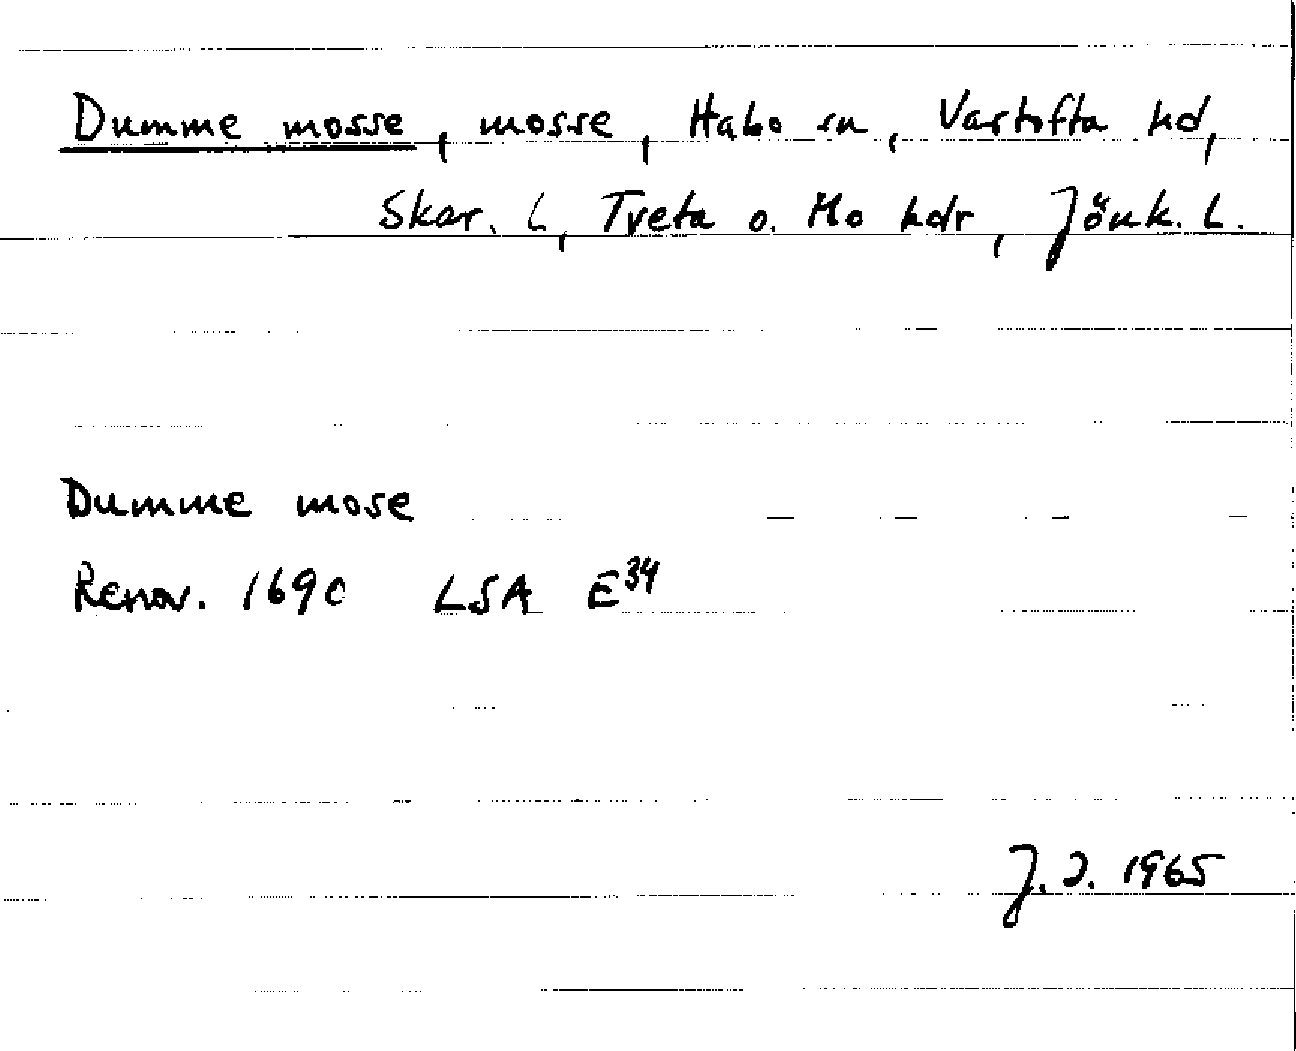 Dumme mosse, mosse, Habo sn, Vartofta hd,
Skar. L, Tveta o. Mo hdr, Jönk. L.
Dumme mose
Renov. 1690 LSA E34
J.J. 1965